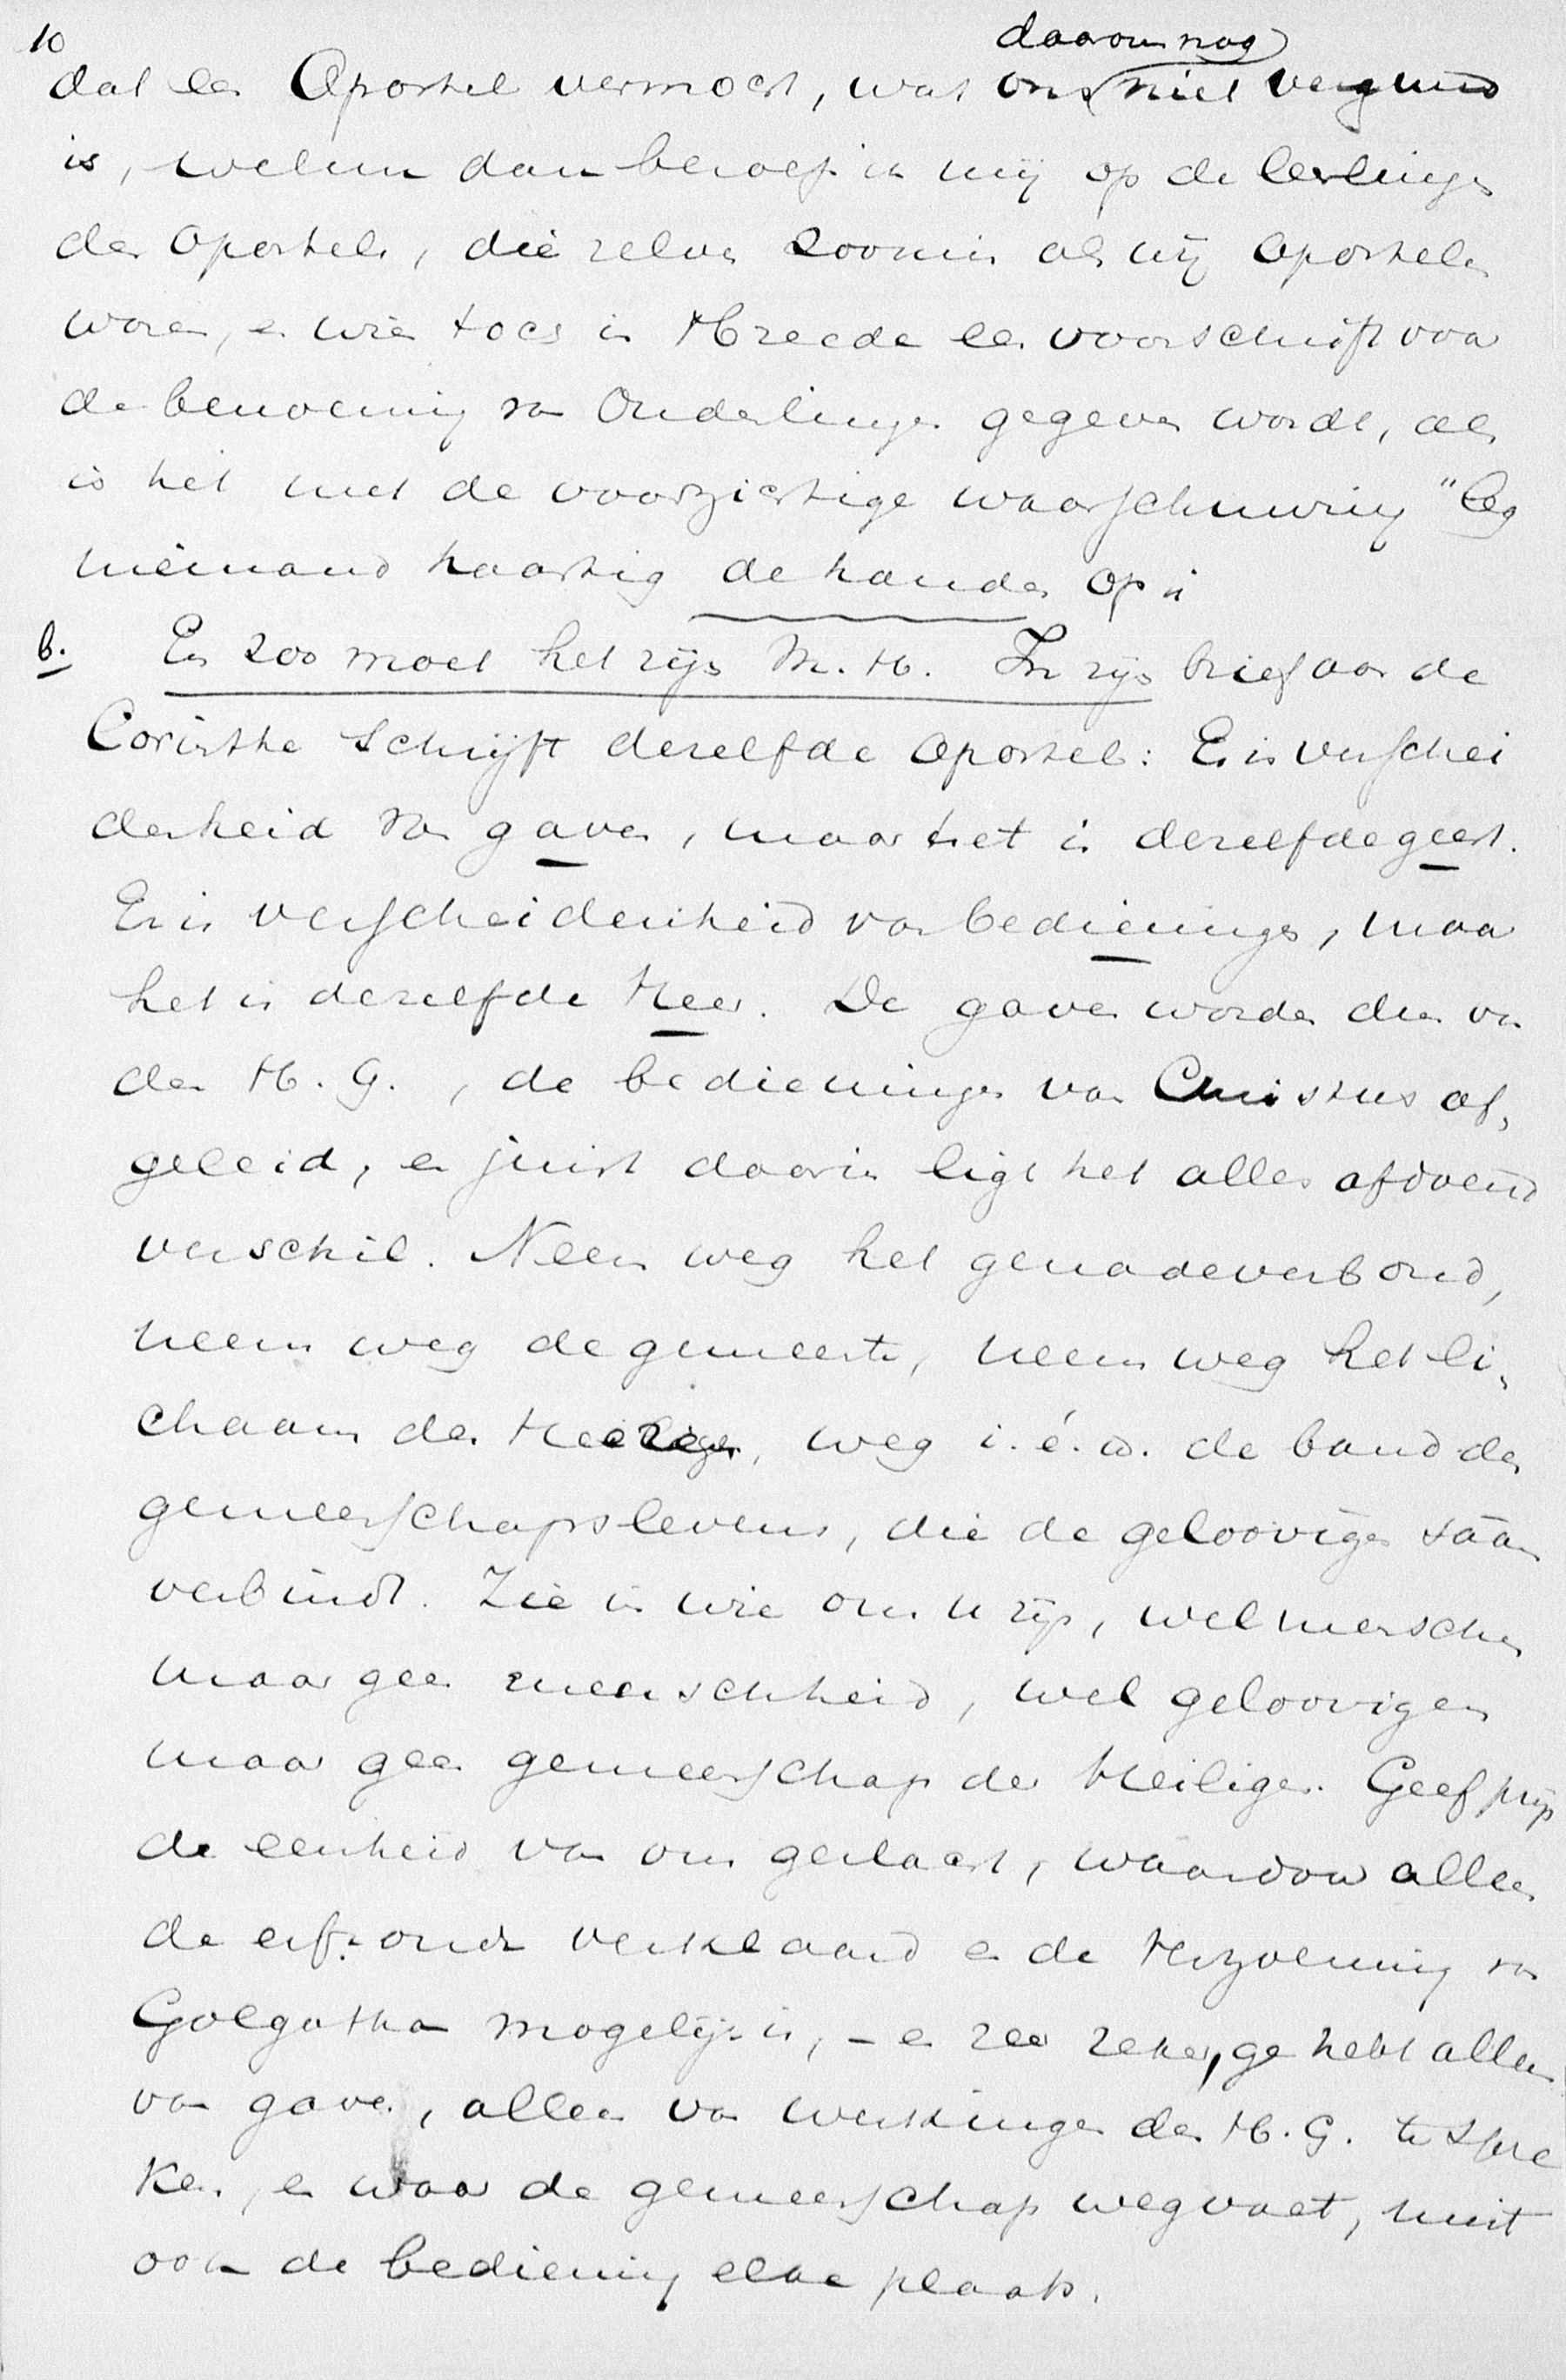 10
daarom nog
dat een Apostel vermocht, wat ons niet vergund
is, welnu dan beroep ik mij op de leerlingen
der Apostelen, die zelven zoomin als wij Apostelen
waren, en wien toch in H. reede een voorschrift voor
de benoeming van Ouderlingen gegeven wordt, al
is het met de voorzichtige waarschuwing "leg
niemand haastig de handen op"
b. En zoo moet het zijn M. H. In zijn brief aan de
Corinthe schrijft dezelfde Apostel: Er is verschei
denheid van gaven, maar het is dezelfde geest.
Er is verscheidenheid van bedieningen, maar
het is dezelfde Heer. De gaven worden dus van
den H. G., de bedieningen van Christus af,
geleid, en juist daarin ligt het alles afdoend
verschil. Neem weg het genadeverbond,
neem weg de gemeente, neem weg het li,
chaam der Heiligen, weg i. é. w. de band des
gemeenschapslevens, die de geloovigen saâm
verbindt. Zie in wie om u zijn, wel menschen
maar geen menschheid, wel geloovigen
maar geen gemeenschap der Heiligen. Geef prijs
de eenheid van ons geslacht, waardoor alleen
de erfzonde verklaard en de Verzoening van
Golgotha mogelijk is, - en zeer zeker, ge hebt alleen
van gaven, alleen van werkingen des H. G. te spre
ken, en waar de gemeenschap wegvalt, mist
ook de bediening elke plaats.